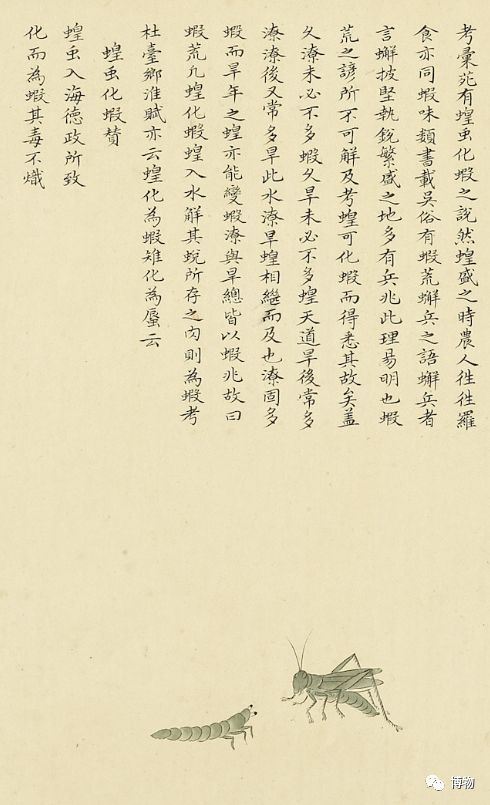 考彙苑有蝗虫化蝦之說然蝗盛之時農人徃徃羅
食亦同蝦味類書載吳俗有蝦荒蠏兵之語蠏兵者
言蠏披堅執銳繁盛之地多有兵兆此理易明也蝦
荒之諺所不可解及考蝗可化蝦而得悉其故矣蓋
久潦未必不多蝦久旱未必不多蝗天道旱後常多
潦潦後又常多旱此水潦旱蝗相繼而及也潦固多
蝦而旱年之蝗亦能變蝦潦與旱總皆以蝦兆故曰
蝦荒凢蝗化蝦蝗入水解其蛻所存之肉則為蝦考
杜臺鄉淮賦亦云蝗化為蝦雉化為蜃云
蝗虫化蝦贊
蝗虫入海德政所致
化而為蝦其毒不熾
博物